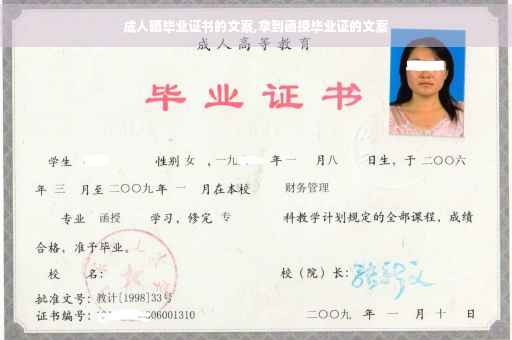 成人晒毕业证书的文案,拿到函授毕业证的文案
成人高等教育
毕业证书
学生 性别 女 ,一九 年 一 月八 日生，于 二〇〇六
年 三 月至 二〇〇九 年 一 月在本校 财务管理
专业 函授 学习，修完 专 科教学计划规定的全部课程，成绩
合格，准予毕业。
校 名： 校（院）长：
批准文号：教计[1998]33号
证书编号：10 606001310 二〇〇九 年 一 月 十 日